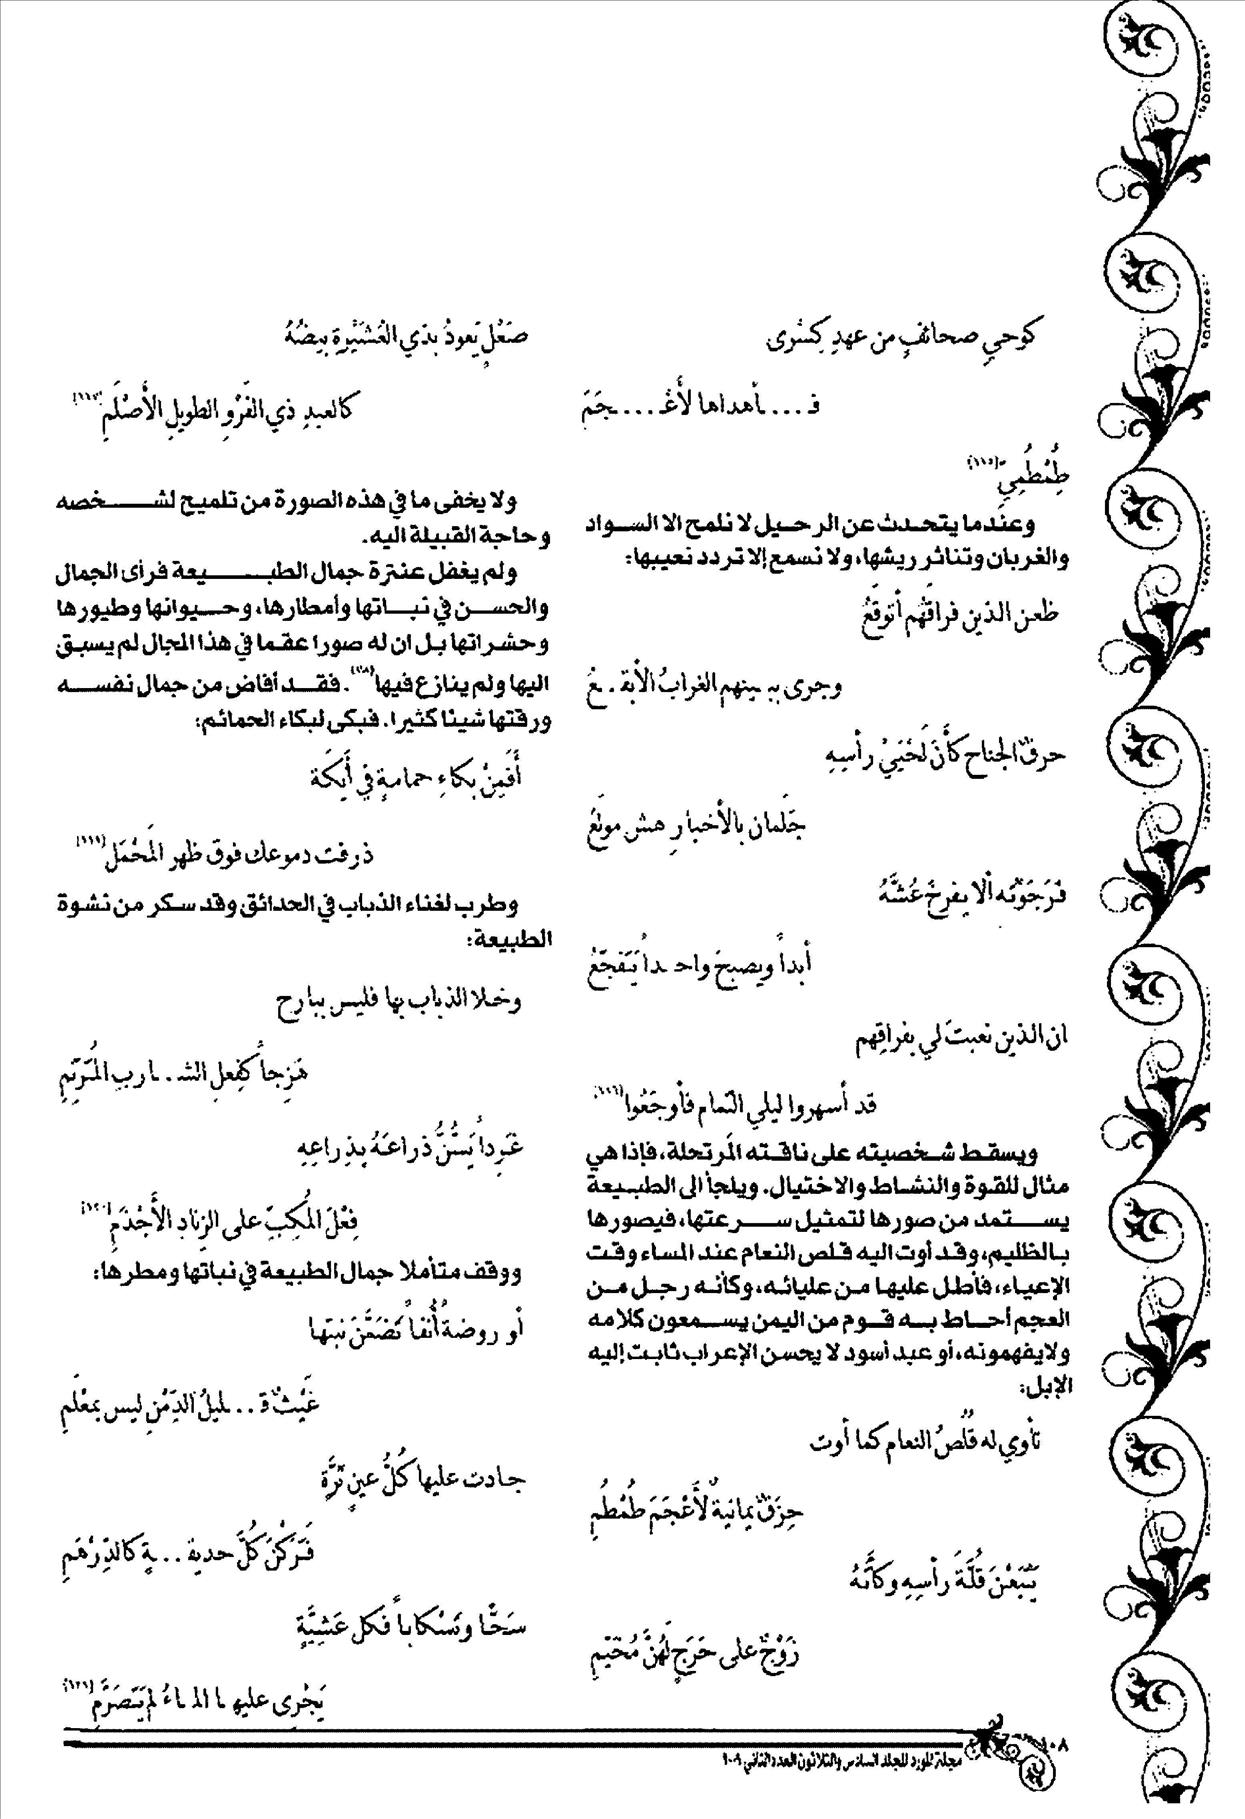 كوحيِ صحائفٍ من عهدِ كِسْرى
فـ....ـأهداها لأَعْـ....ـجَمَ
طِمْطُمِيّ (١١٥)
وعندما يتحدث عن الرحيل لا نلمح الا السواد
والغربان وتناثر ريشها، ولا نسمع إلا تردد نعيبها:
ظعن الذين فراقَهُم أتوقَعُ
وجرى ببينهم الغرابُ الأبقـ.ـعُ
حرقُ الجناح كأنَ لَحْيَيْ رأسِهِ
جَلَمان بالأخبارِ هش مولَعُ
فزجَرْتُه ألا يفرخَ عُشَّهُ
أبداً ويصبحَ واحـداً يَتَفَجَّعُ
ان الذين نعبتَ لي بفراقِهم
قد أسهروا ليلي التّمام فأوجَعُوا (١١٦)
ويسقط شخصيته على ناقته المرتحلة، فإذا هي
مثال للقوة والنشاط والاختيال. ويلجأ الى الطبيعة
يستمد من صورها لتمثيل سرعتها، فيصورها
بالظليم، وقد أوت اليه قلص النعام عند المساء وقت
الإعياء، فأطل عليها من عليائه، وكأنه رجل من
العجم أحاط به قوم من اليمن يسمعون كلامه
ولايفهمونه، أو عبد أسود لا يحسن الإعراب ثابت إليه
الإبل:
تأوي له قُلُصُ النعام كما أوت
حِزَقٌ يمانيةٌ لأَعْجَمَ طُمْطُمِ
يَتْبَعْنَ قُلَّةَ رأسِهِ وكأنَّهُ
زَوْجٌ على حَرَجٍ لَهُنَّ مُخَيَّمِ
صَعْلٍ يَعودُ بذي العُشَيْرةِ بيضُهُ
كالعبدِ ذي الفَرْوِ الطويلِ الأَصْلَمِ (١١٧)
ولا يخفى ما في هذه الصورة من تلميح لشخصه
وحاجة القبيلة اليه.
ولم يغفل عنترة جمال الطبيعة فرأى الجمال
والحسن في نباتها وأمطارها، وحيوانها وطيورها
وحشراتها بل ان له صورا عقما في هذا المجال لم يسبق
اليها ولم ينازع فيها (١١٨). فقد أفاض من جمال نفسه
ورقتها شيئا كثيرا. فبكى لبكاء الحمائم:
أَفَمِنْ بكاءِ حمامةٍ في أَيكَة
ذرفت دموعك فوق ظهر المَحْمَل (١١٩)
وطرب لغناء الذباب في الحدائق وقد سكر من نشوة
الطبيعة:
وخلا الذباب بها فليس ببارح
هَزِجاً كفِعلِ الشـ..ـاربِ المُتَرَنِّمِ
غَرِداً يَسُنُّ ذراعَهُ بِذِراعِهِ
فِعْلَ المُكِبِّ على الزِنادِ الأَجْذَمِ (١٢٠)
ووقف متأملا جمال الطبيعة في نباتها ومطرها:
أو روضةً أُنُفاً تَضَمَّنَ نبتَها
غَيْثٌ قـ...ـليلُ الدِّمْنِ ليس بمَعْلَمِ
جادت عليها كُلُّ عينٍ ثَرَّةٍ
فَتَرَكْنَ كُلَّ حديقـ...ـةٍ كالدِّرْهَمِ
سَحّا وتَسْكاباً فكل عَشِيَّةٍ
يَجْرِى عليها الماءُ لم يَتَصَرَّمِ (١٢١)
١٠٨
مجلة المورد المجلد السادس والثلاثون العدد الثاني ٢٠٠٩